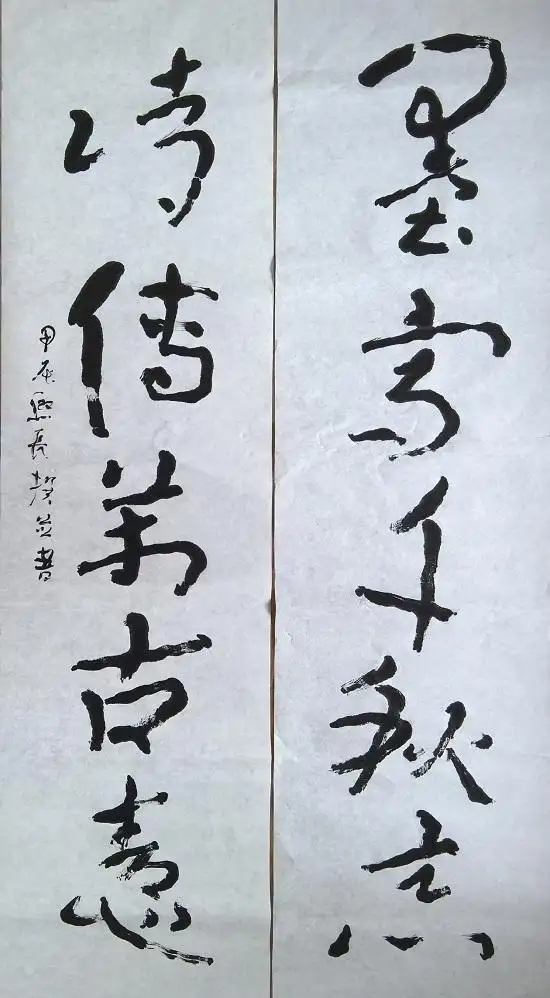 墨寫千秋意
詩傳萬古
甲辰長撰並書